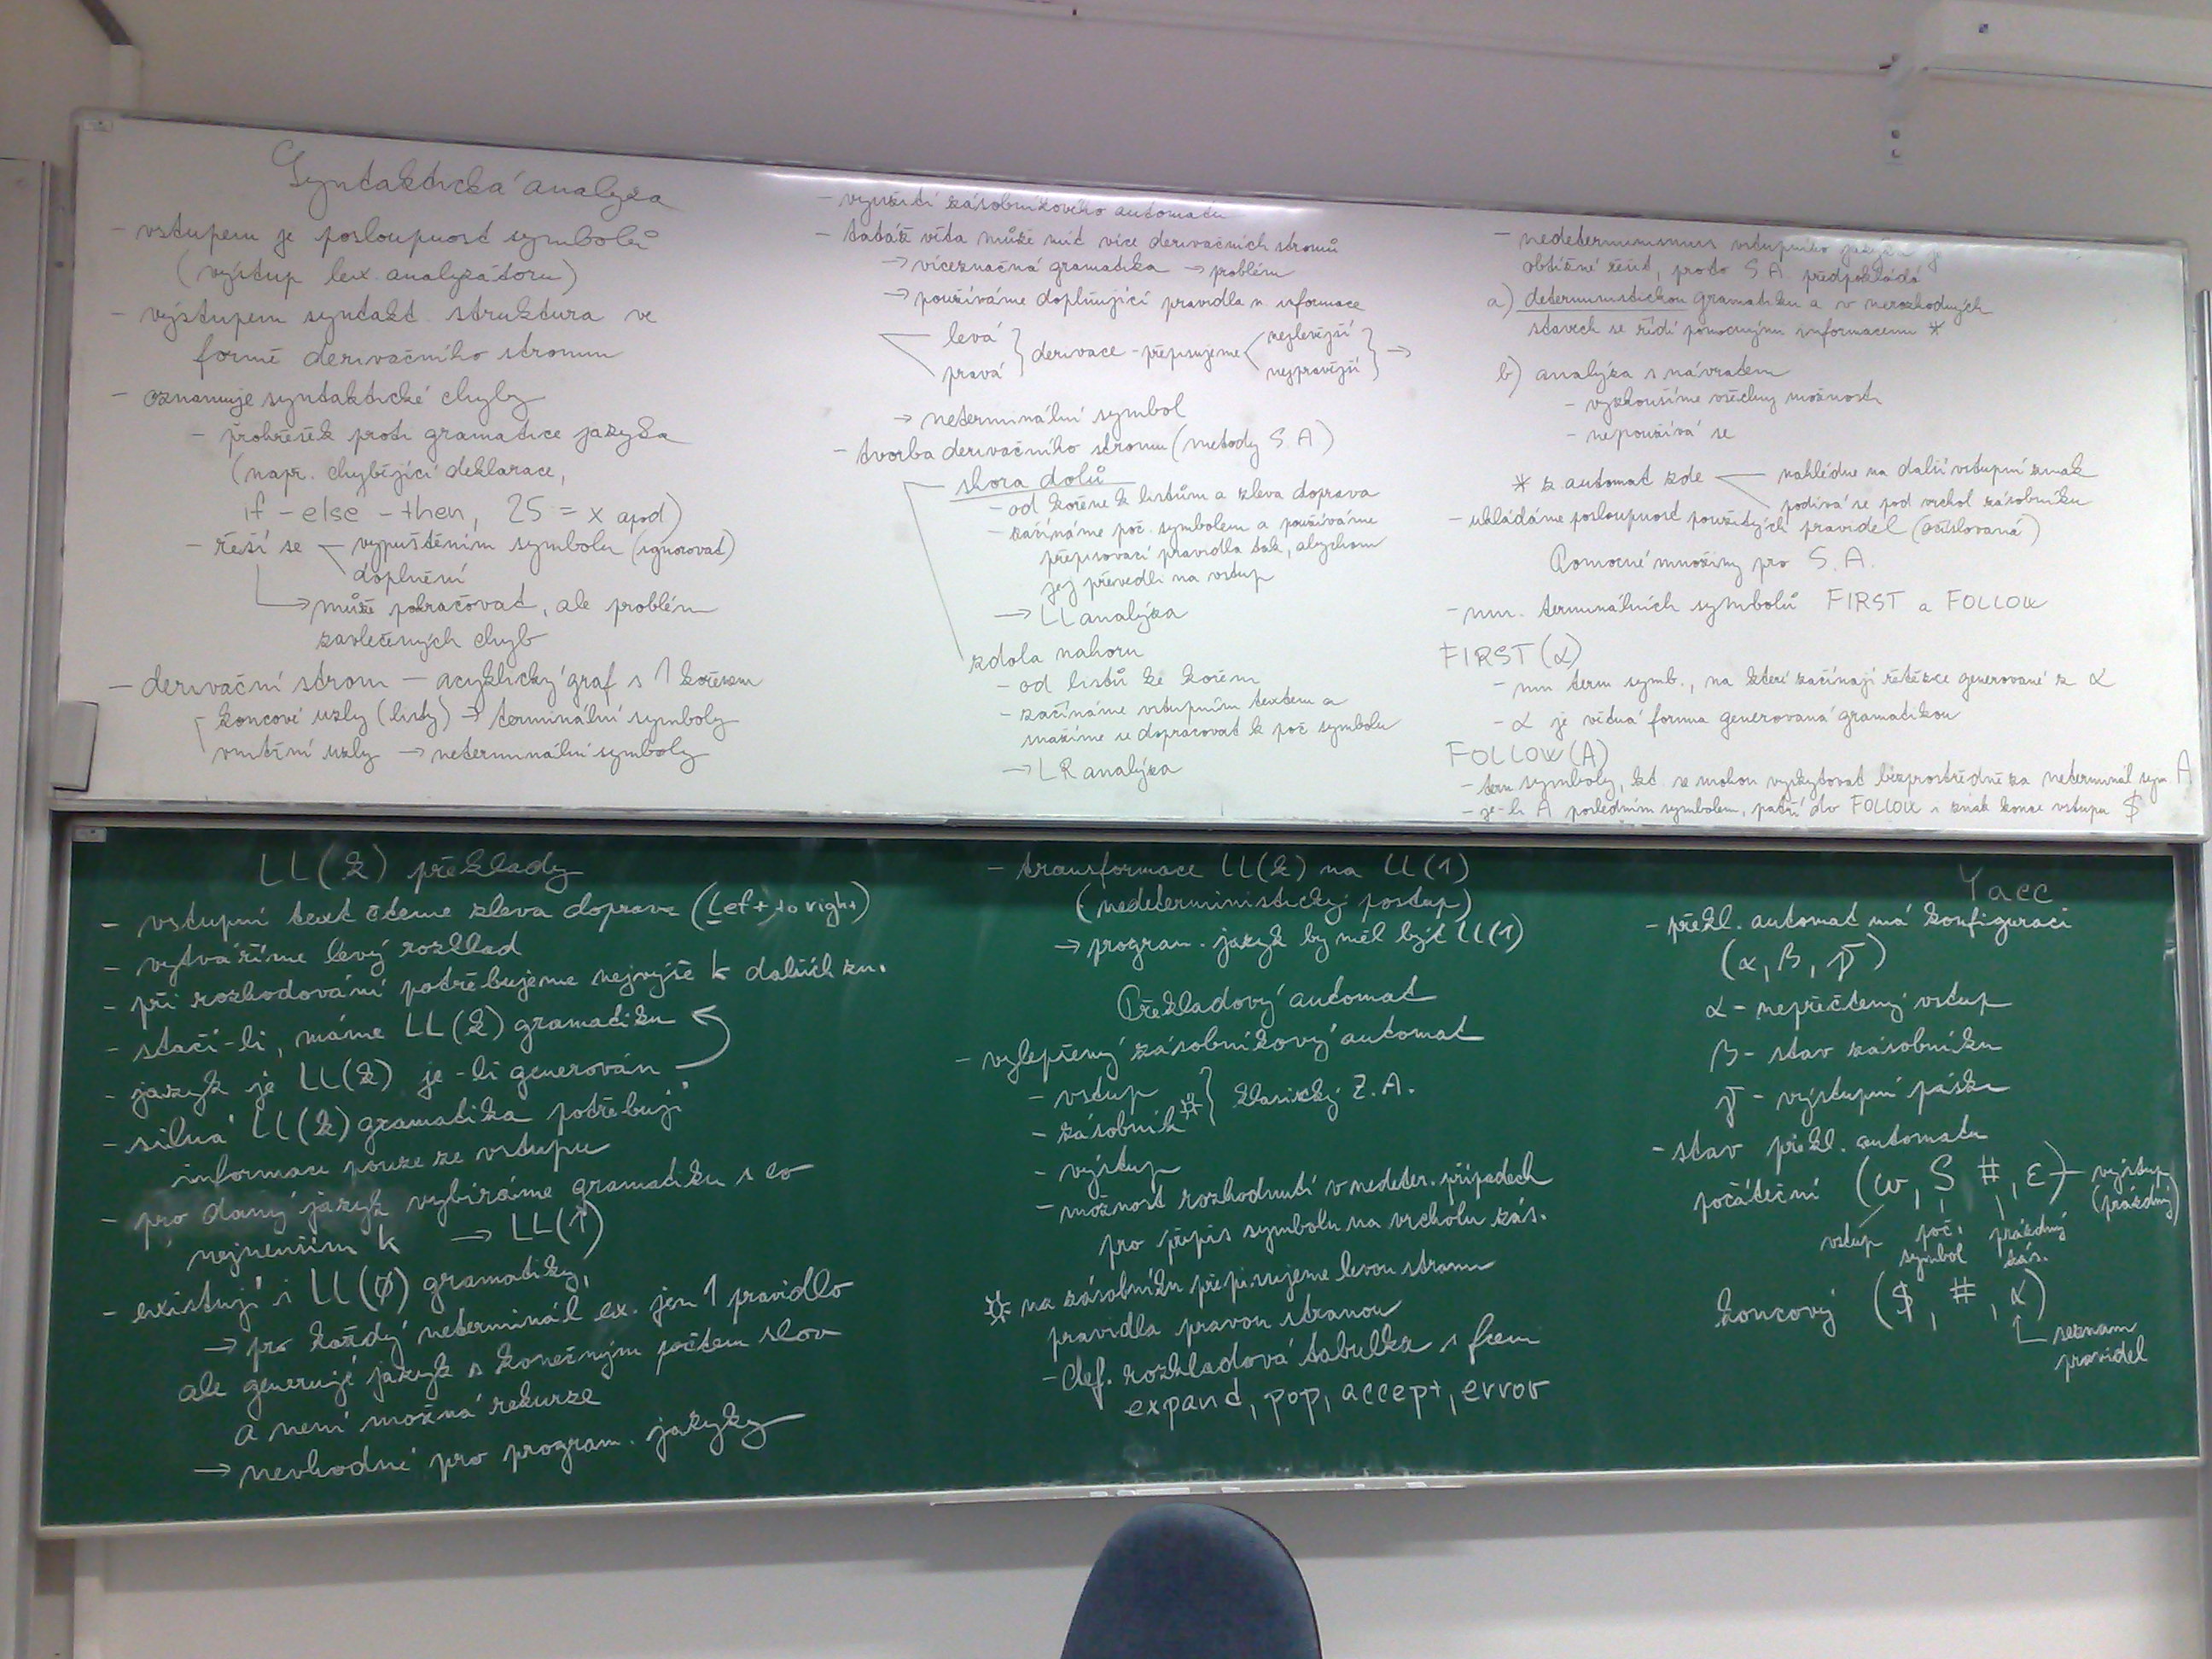 Syntaktická analýza
- vstupem je posloupnost symbolů
(výstup lex. analyzátoru)
- výstupem syntakt. struktura ve
formě derivačního stromu
- oznamuje syntaktické chyby
- prohřešek proti gramatice jazyka
(např. chybějící deklarace,
if - else - then, 25 = x apod)
- řeší se vypuštěním symbolu (ignorovat)
doplnění
→ může pokračovat, ale problém
zavlečených chyb
- derivační strom - acyklický graf s 1 kořenem
koncové uzly (listy) → terminální symboly
vnitřní uzly → neterminální symboly
- využití zásobníkového automatu
- tatáž věta může mít více derivačních stromů
→ víceznačná gramatika → problém
→ používáme doplňující pravidla n informace
levá
pravá } derivace - přepisujeme < nejlevější
nejpravější } →
→ neterminální symbol
- tvorba derivačního stromu (metody S.A)
shora dolů
- od kořene k listům a zleva doprava
- začínáme poč. symbolem a používáme
přepisovací pravidla tak, abychom
jej převedli na vstup
→ LL analýza
zdola nahoru
- od listů ke kořeni
- začínáme vstupním textem a
snažíme se dopracovat k poč symbolu
→ LR analýza
- nedeterminismus vstupního jazyka je
obtížné řešit, proto S.A. předpokládá
a) deterministickou gramatiku a v nerozhodných
stavech se řídí pomocnými informacemi *
b) analýza s návratem
- vyzkoušíme všechny možnosti
- nepoužívá se
* z. automat zde nahlédne na další vstupní znak
podívá se pod vrchol zásobníku
- ukládáme posloupnost použitých pravidel (očíslovaná)
Pomocné množiny pro S.A.
- mn. terminálních symbolů FIRST a FOLLOW
FIRST(α)
- mn. term symb., na které začínají řetězce generované z α
- α je větná forma generovaná gramatikou
FOLLOW(A)
- term symboly, kt se mohou vyskytovat bezprostředně za neterminál. sym A
- je-li A posledním symbolem, patří do FOLLOW i znak konce vstupu $
LL(k) překlady
- vstupní text čteme zleva doprava (Left to right)
- vytváříme levý rozklad
- při rozhodování potřebujeme nejvýše k dalších zn.
- stačí-li, máme LL(k) gramatiku
- jazyk je LL(k) je-li generován
- silná LL(k) gramatika potřebují
informaci pouze ze vstupu
- pro daný jazyk vybíráme gramatiku s co
nejmenším k → LL(1)
- existují i LL(0) gramatiky,
→ pro každý neterminál ex. jen 1 pravidlo
ale generuje jazyk s konečným počtem slov
a není možná rekurze
→ nevhodné pro program. jazyky
- transformace LL(k) na LL(1)
(nedeterministický postup)
→ program. jazyk by měl být LL(1)
Překladový automat
- vylepšený zásobníkový automat
- vstup
- zásobník ☼ } klasický Z.A.
- výstup
- možnost rozhodnutí v nedeter. případech
pro přepis symbolu na vrcholu zás.
☼ na zásobníku přepisujeme levou stranu
pravidla pravou stranou
- def. rozkladová tabulka s fcem
expand, pop, accept, error
Yacc
- překl. automat má konfiguraci
(α, β, γ)
α - nepřečtený vstup
β - stav zásobníku
γ - výstupní páska
- stav překl. automatu
počáteční (w, S #, ε) výstup
(prázdný)
vstup poč. prázdný
symbol zás.
koncový ($, #, α)
seznam
pravidel